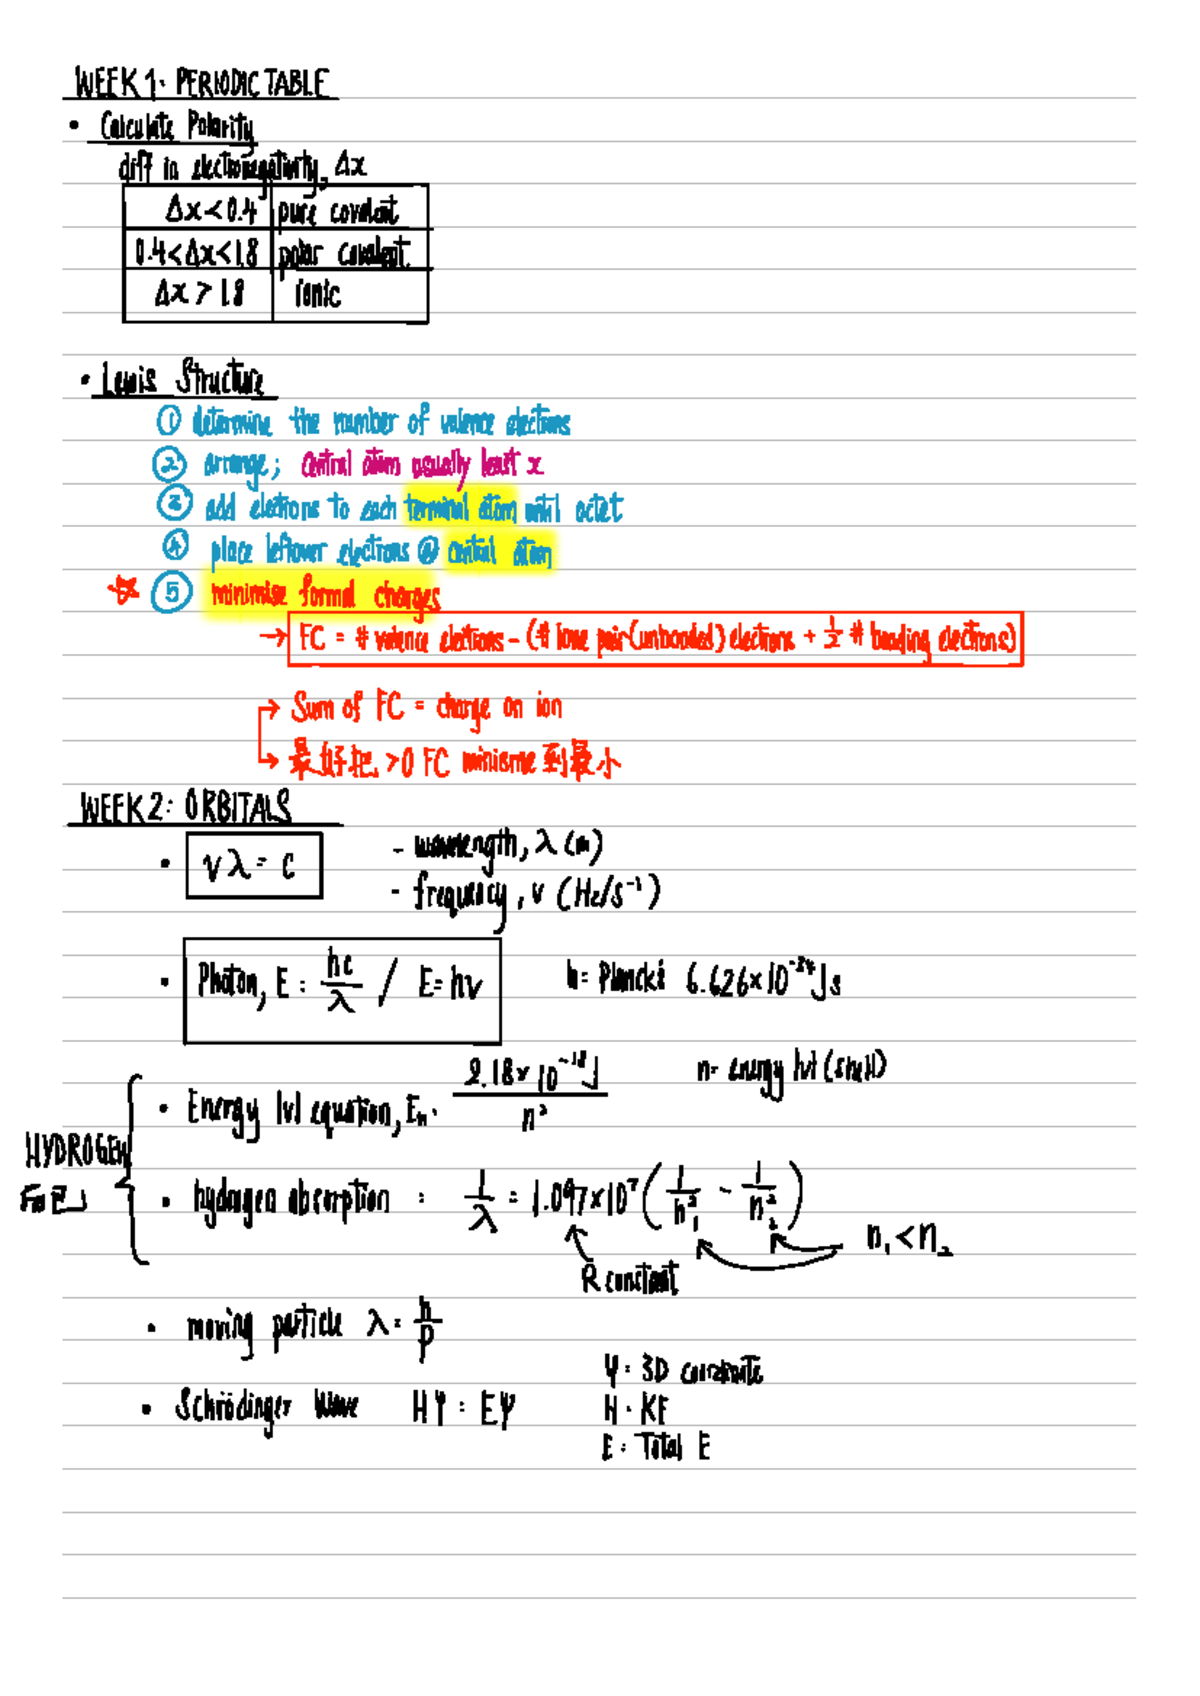 WEEK 1: PERIODIC TABLE
• Calculate Polarity
diff in electronegativity, Δx
Δx < 0.4 | pure covalent
0.4 < Δx < 1.8 | polar covalent
Δx > 1.8 | ionic
• Lewis Structure
① determine the number of valence electrons
② arrange; central atom usually least x
③ add electrons to each terminal atom until octet
④ place leftover electrons @ central atom
☆ ⑤ minimise formal charges
→ FC = # valence electrons - (# lone pair (unbonded) electrons + 1/2 # bonding electrons)
→ Sum of FC = charge on ion
→ 最好把 >0 FC minimise 到最小
WEEK 2: ORBITALS
• vλ = c
- wavelength, λ (m)
- frequency, v (Hz/s⁻¹)
• Photon, E = hc/λ / E = hv
h = Planck's 6.626×10⁻³⁴ Js
• Energy lvl equation, Eₙ = 2.18×10⁻¹⁸J / n²
n = energy lvl (shell)
HYDROGEN
• hydrogen absorption = 1/λ = 1.097×10⁷ (1/n₁² - 1/n₂²)
n₁ < n₂
R constant
• moving particle λ = h/p
• Schrödinger Wave HΨ = EΨ
Ψ = 3D coordinate
H = KE
E = Total E